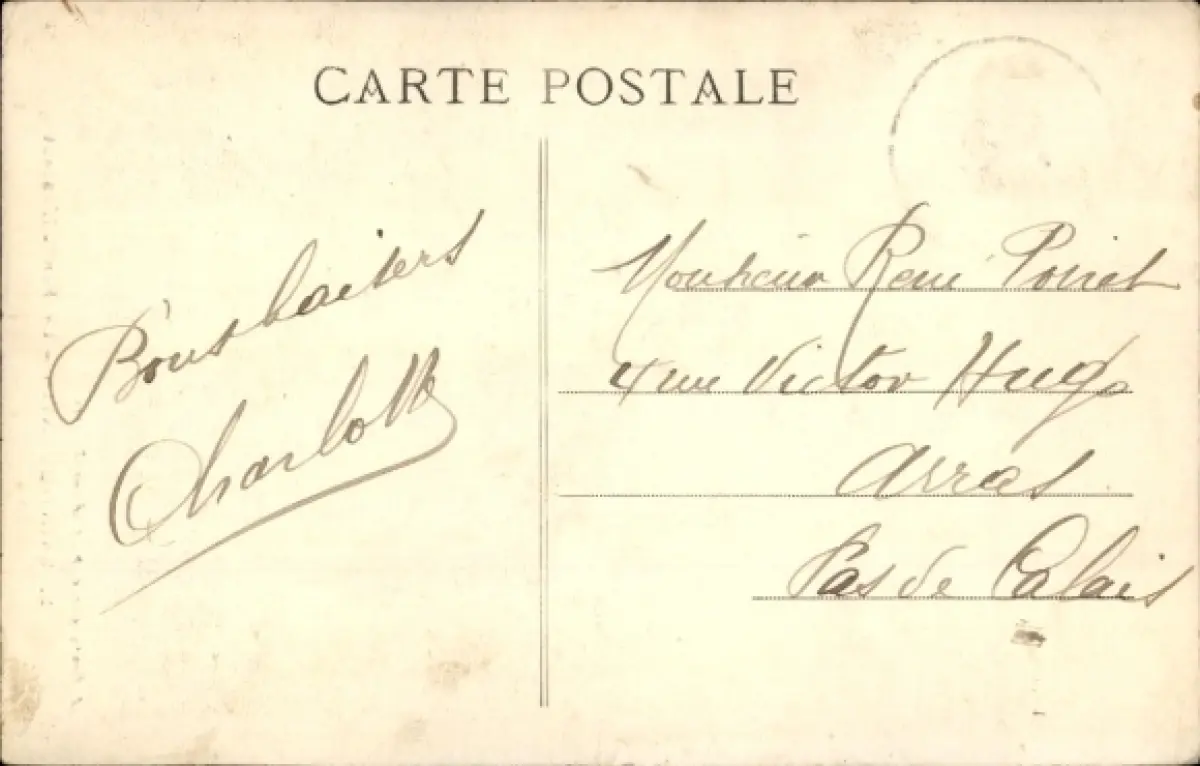 CARTE POSTALE
Bons baisers
Charlotte
Monsieur René Poiret
4 rue Victor Hugo
Arras
Pas de Calais